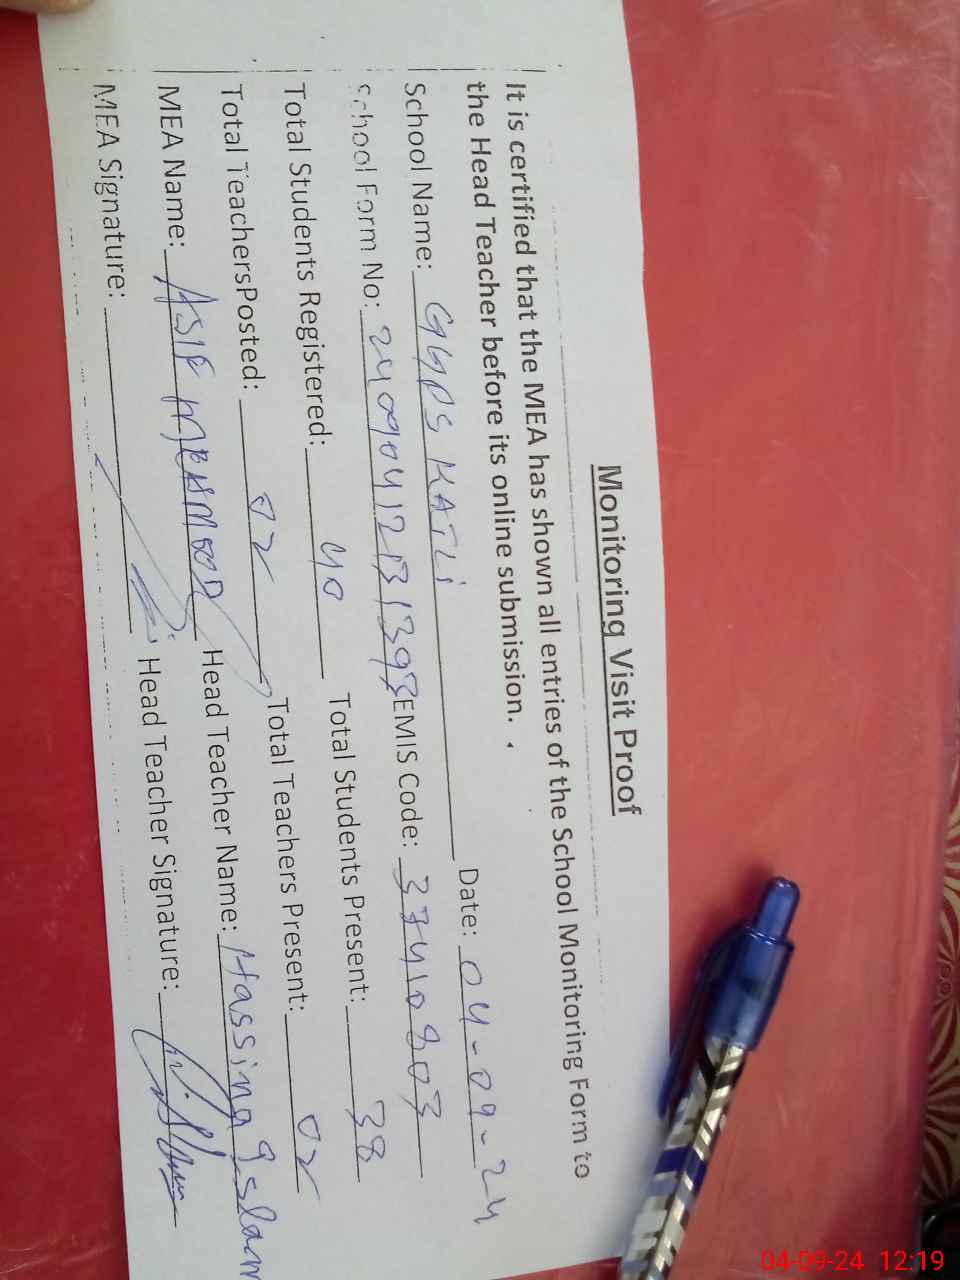 Monitoring Visit Proof
It is certified that the MEA has shown all entries of the School Monitoring Form to
the Head Teacher before its online submission.
School Name: GGPS KATLi Date: 04-09-24
School Form No: EMIS Code: 37410803
Total Students Registered: 40 Total Students Present: 38
Total TeachersPosted: 02 Total Teachers Present: 02
MEA Name: ASIF MEHMOOD Head Teacher Name: Hassina Islam
MEA Signature: Head Teacher Signature:
04-09-24 12:19